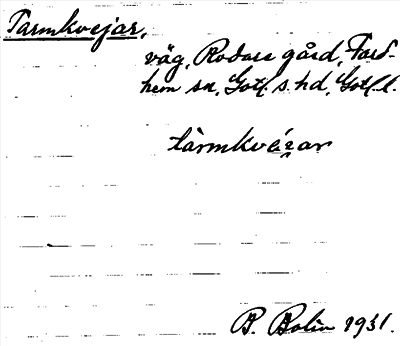 Tarmkvejar,
väg, Rodars gård, Fard-
hem sn, Gotl. s. hd, Gotl. l.
tàrmkvé̱ar
B. Bolin 1931.